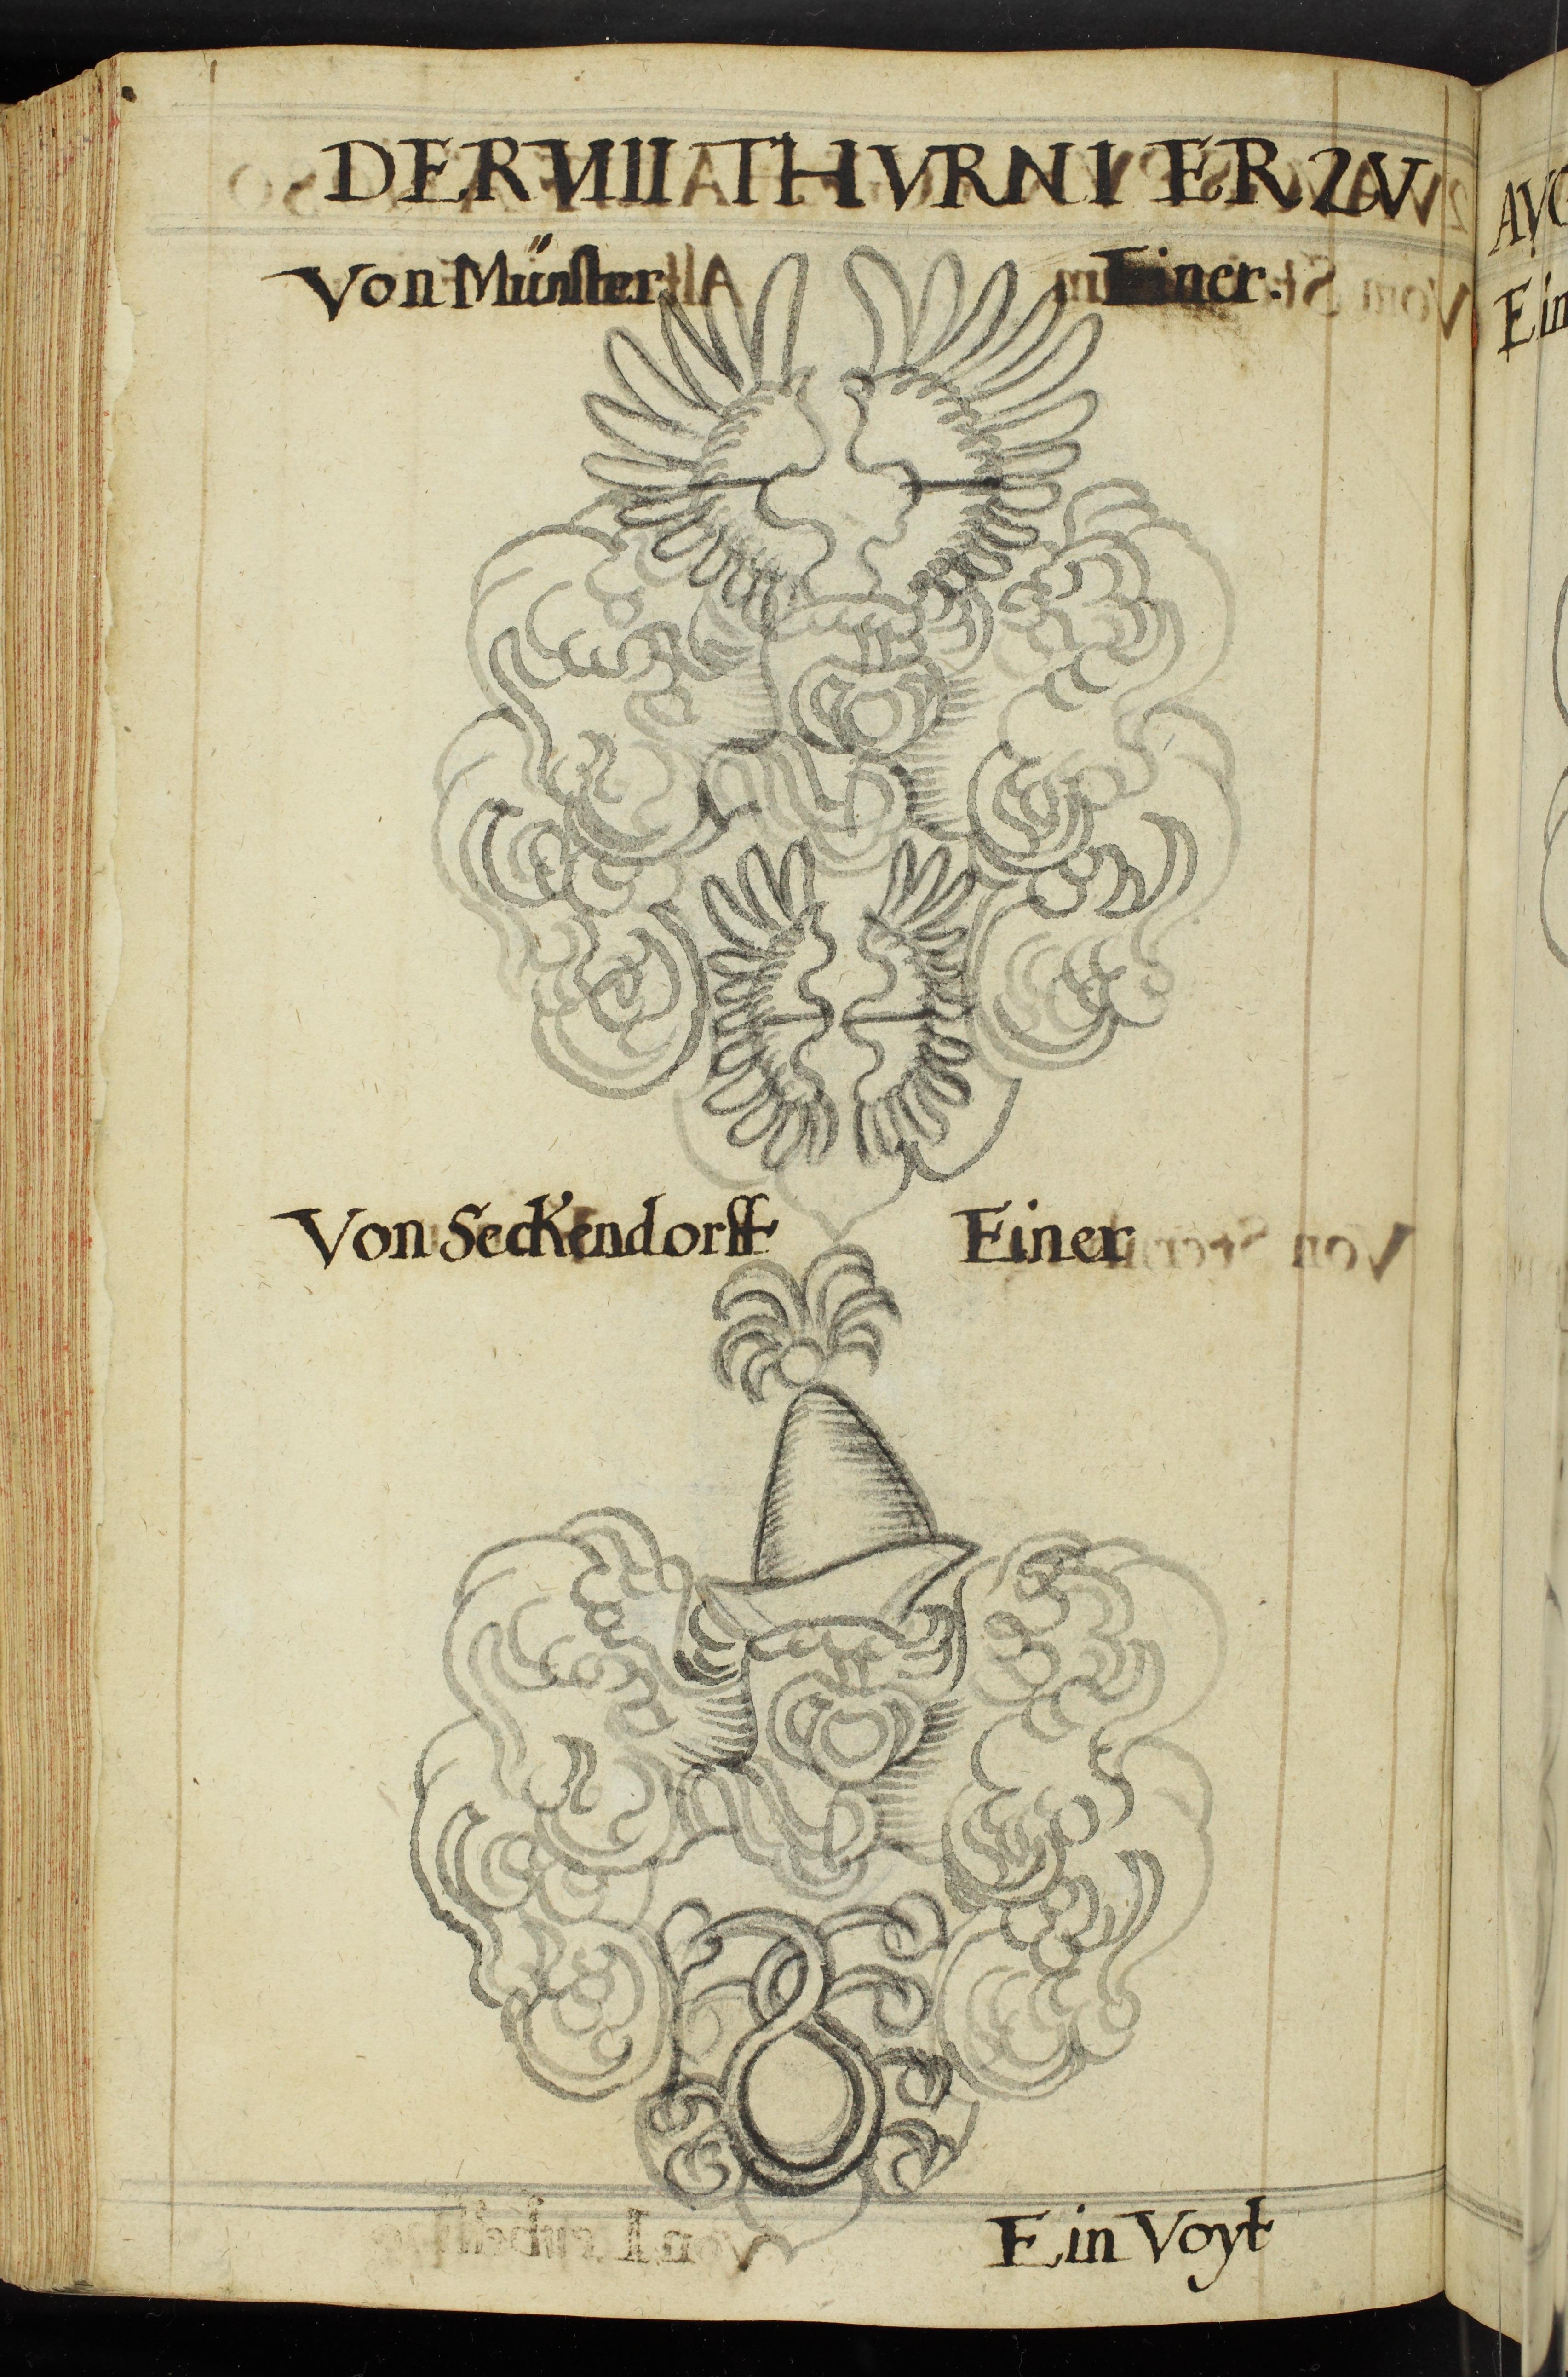 DER VIII THVRNIER ZV
Von Münster Einer.
Von Seckendorff Einer
Ein Voyt
AVG
Ein